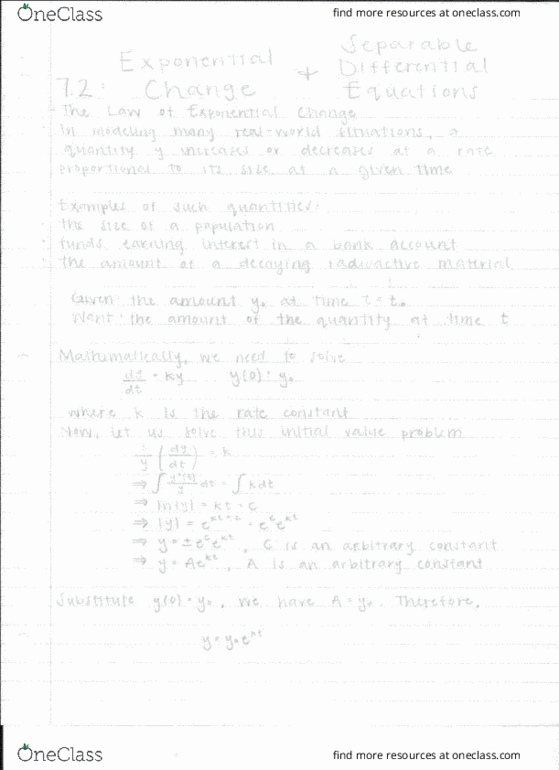 OneClass
find more resources at oneclass.com
7.2: Exponential Change + Separable Differential Equations
The Law of Exponential Change
In modeling many real-world situations, a
quantity y increases or decreases at a rate
proportional to its size at a given time
Examples of such quantities:
the size of a population
funds earning interest in a bank account
the amount of a decaying radioactive material
Given: the amount y₀ at time t = t₀
Want: the amount of the quantity at time t
Mathematically, we need to solve
dy/dt = ky y(0) = y₀
where k is the rate constant
Now, let us solve this initial value problem
1/y (dy/dt) = k
⇒ ∫ y'(t)/y dt = ∫ k dt
⇒ ln|y| = kt + C
⇒ |y| = e^(kt+c) = e^c e^(kt)
⇒ y = ±e^c e^(kt), C is an arbitrary constant
⇒ y = Ae^(kt), A is an arbitrary constant
Substitute y(0) = y₀, we have A = y₀. Therefore,
y = y₀e^(kt)
OneClass
find more resources at oneclass.com